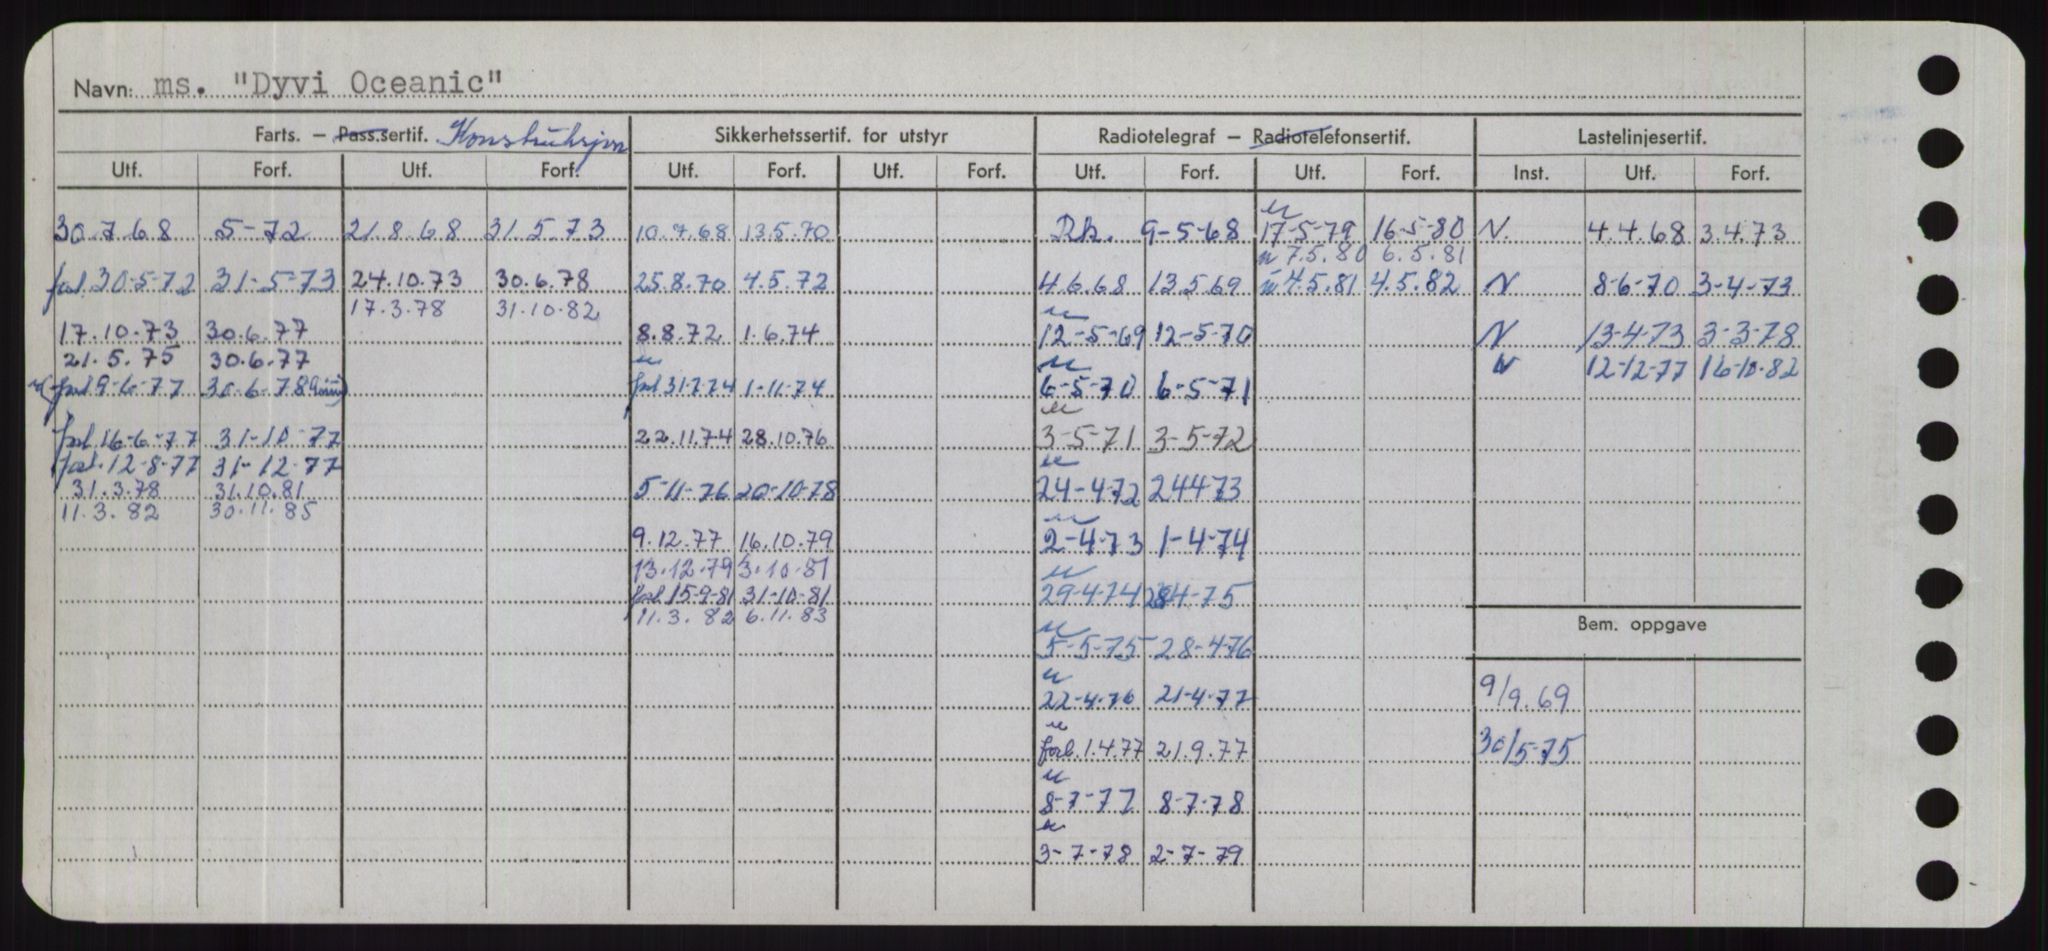 Navn: ms. "Dyvi Oceanic"
Farts. – Pass.sertif. Konstruksjon Sikkerhetssertif. for utstyr Radiotelegraf – Radiotelefonsertif. Lastelinjesertif.
Utf. Forf. Utf. Forf. Utf. Forf. Utf. Forf. Utf. Forf. Utf. Forf. Inst. Utf. Forf.
30.7.68 5-72 21.8.68 31.5.73 10.7.68 13.5.70 Rk. 9-5-68 17-5-79 16-5-80 N. 4.4.68 3.4.73
7.5.80 6.5.81
forl. 30-5-72 31-5-73 24.10.73 30.6.78 25.8.70 4.5.72 4.6.68 13.5.69 4.5.81 4.5.82 N 8-6-70 3-4-73
17.3.78 31.10.82
17.10.73 30.6.77 8.8.72 1.6.74 12-5-69 12-5-70 N 13-4-73 3-3-78
21.5.75 30.6.77 N 12-12-77 16-10-82
forl 9-6-77 30-6-78 forl 31-7-74 1-11-74 6-5-70 6-5-71
forl. 16-6-77 31-10-77 22.11.74 28.10.76 3-5-71 3-5-72
forl. 12-8-77 31-12-77
31.3.78 31.10.81 5-11-76 20-10-78 24-4-72 24473
11.3.82 30.11.85
9.12.77 16.10.79 2-4-73 1-4-74
13.12.79 3.10.81
forl. 15-9-81 31-10-81 29-4-74 284-75
11.3.82 6.11.83
Bem. oppgave
5-5-75 28-4-76
22-4-76 21-4-77 9/9.69
forl. 1.4.77 21.9.77 30/5-75
8-7-77 8-7-78
3-7-78 2-7-79